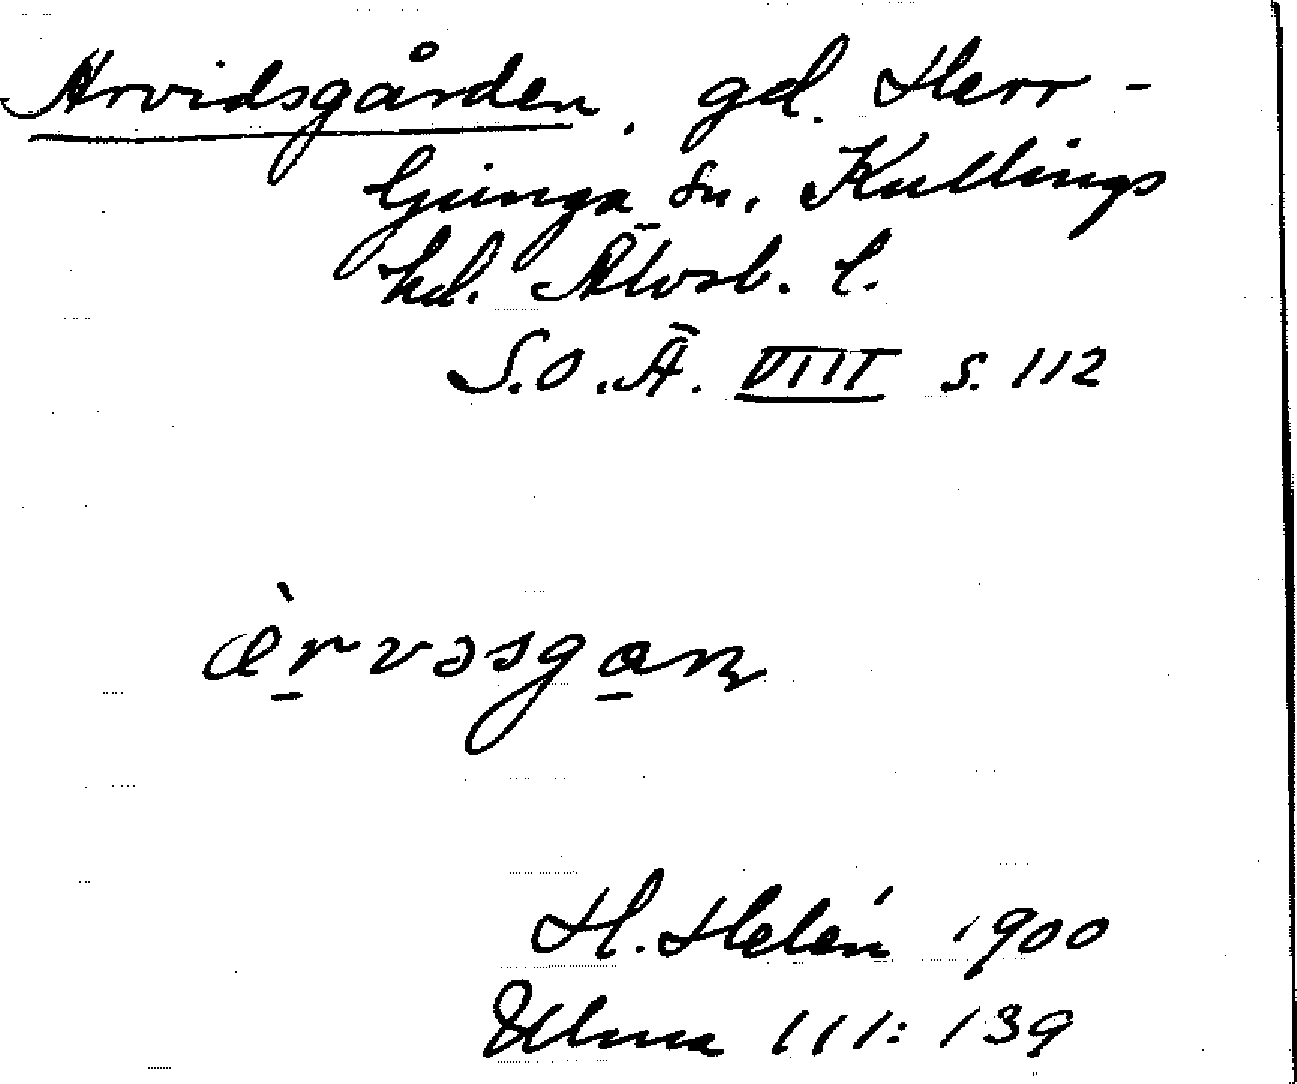 Arvidsgården, gd. Herr-
ljunga sn. Kullings
hd. Älvsb. l.
S.O.Ä. VIII s. 112
æ̀r̠vəsga̠ɳ
H. Helén 1900
Ulma 111:139